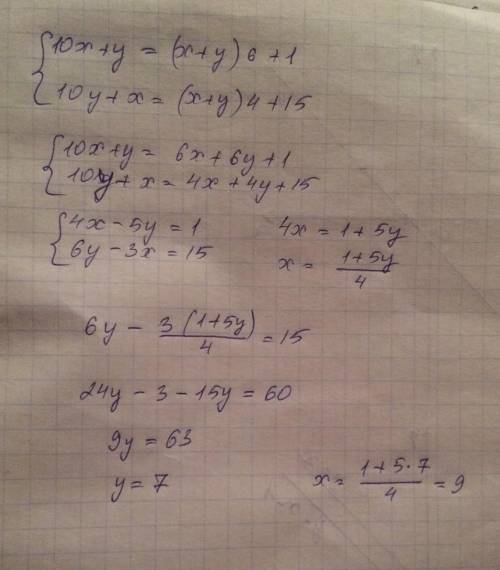 {10x+y = (x+y)6+1
10y+x = (x+y)4+15
{10x+y = 6x+6y+1
10y+x = 4x+4y+15
{4x-5y=1 4x=1+5y
6y-3x=15 x= (1+5y)/4
6y - 3(1+5y)/4 = 15
24y-3-15y=60
9y=63
y=7 x= (1+5·7)/4 =9